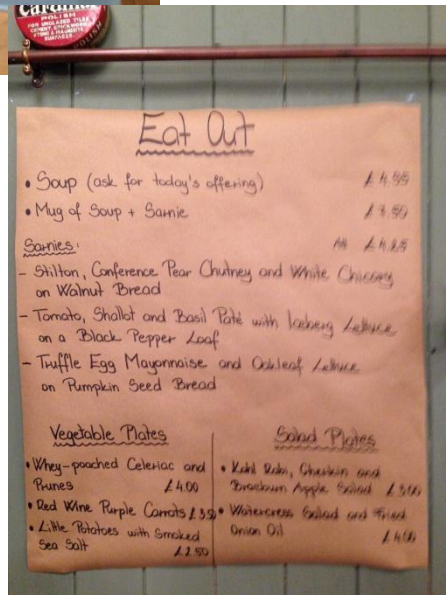 Cardinal
POLISH
FOR UNGLAZED TILES
CEMENT, BRICKWORK
STONE & 
SURFACES
POLISH
Eat Out
• Soup (ask for today's offering)
• Mug of Soup + Sarnie £7.50
Sarnies: All
- Stilton, Conference Pear Chutney and White Chicory
on Walnut Bread
- Tomato, Shallot and Basil Paté with Iceberg Lettuce
on a Black Pepper Loaf
- Truffle Egg Mayonnaise and Oakleaf Lettuce
on Pumpkin Seed Bread
Vegetable Plates
• Whey-poached Celeriac and
Prunes £4.00
• Red Wine Purple Carrots £3.50
• Little Potatoes with Smoked
Sea Salt
£2.50
Salad Plates
• Kohl Rabi, Gherkin and
Braeburn Apple Salad £3.00
• Watercress Salad and Fried
Onion Oil £4.00